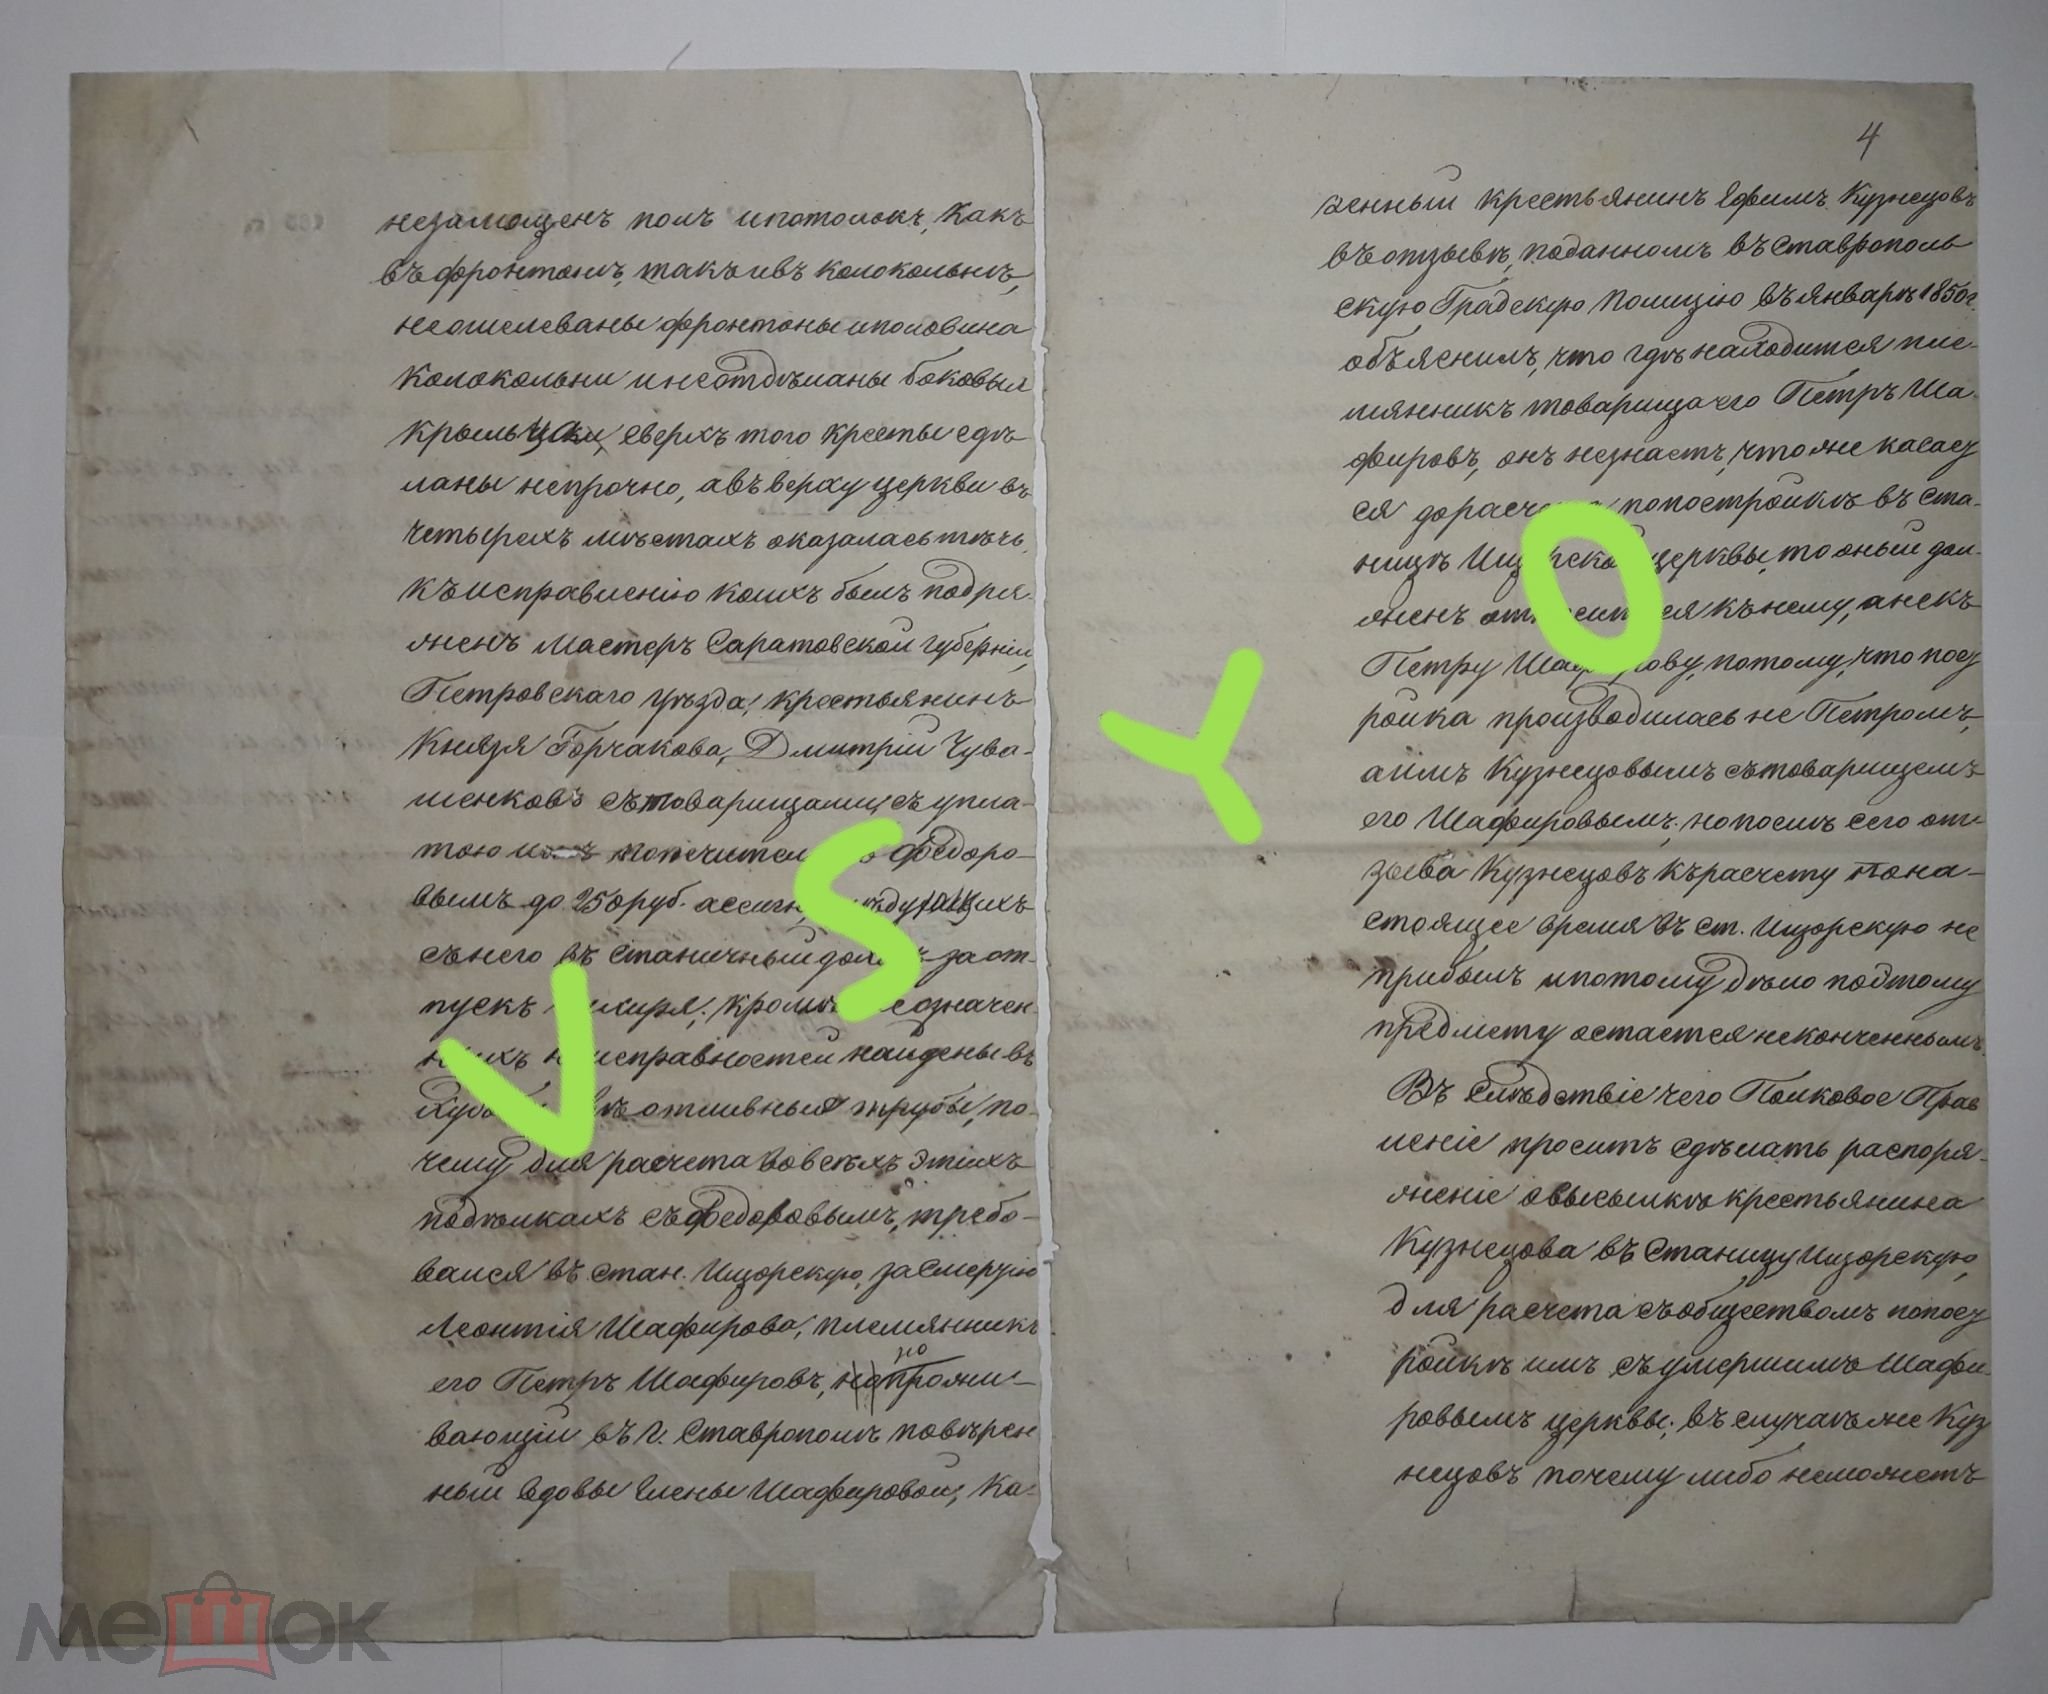 незамощенъ полъ и потолокъ, какъ
въ фронтоне, такъ и въ колокольнѣ,
неошелеваны фронтоны и половина
колокольни и неотдѣланы боковыя
крыльца, сверхъ того кресты сдѣ-
ланы непрочно, а въ верху церкви въ
четырехъ мѣстахъ оказалась течь,
къ исправленію коихъ былъ подря-
женъ мастеръ Саратовской губерніи,
Петровскаго уѣзда, крестьянинъ
Князя Горчакова, Дмитрій Чува-
шенковъ съ товарищами, съ упла-
тою
вымъ до 250 руб. ассигн.
съ него въ станичный за от-
пускъ кромѣ
найдены въ
отливныя трубы, по-
чему для расчета во всѣхъ этихъ
подѣлкахъ съ Федоровымъ, требо-
вался въ стан. Ищорскую, за смертію
Леонтія Шафирова, племянникъ
его Петръ Шафировъ, но прожи-
вающій въ г. Ставрополѣ повѣрен
ный вдовы Елены Шафировой, Ка-
4
зенный крестьянинъ Ефимъ Кузнецовъ
въ отзывѣ, поданномъ въ Ставрополь
скую Градскую Полицію въ январѣ 1850 г.
объяснилъ, что гдѣ находится пле-
мянникъ товарища его Петръ Ша-
фировъ, онъ незнаетъ, что же касает
ся до по постройкѣ въ ста-
ницѣ церквы, то оный дол-
женъ къ нему, а не къ
Петру потому, что пост
ройка производилась не Петромъ,
а имъ Кузнецовымъ съ товарищемъ
его Шафировымъ; но послѣ сего от-
зыва Кузнецовъ къ расчету по на-
стоящее время въ ст. Ищорскую не
прибылъ и потому дѣло по этому
предмету остается неконченнымъ.
Въ слѣдствіе чего Полковое Прав
леніе проситъ сдѣлать распоря-
женіе о высылкѣ крестьянина
Кузнецова въ станицу Ищорскую,
для расчета съ обществомъ по пост
ройкѣ имъ съ умершимъ Шафи-
ровымъ церквы; въ случаѣ же Куз
нецовъ почему либо неможетъ
V S Y O
мешок